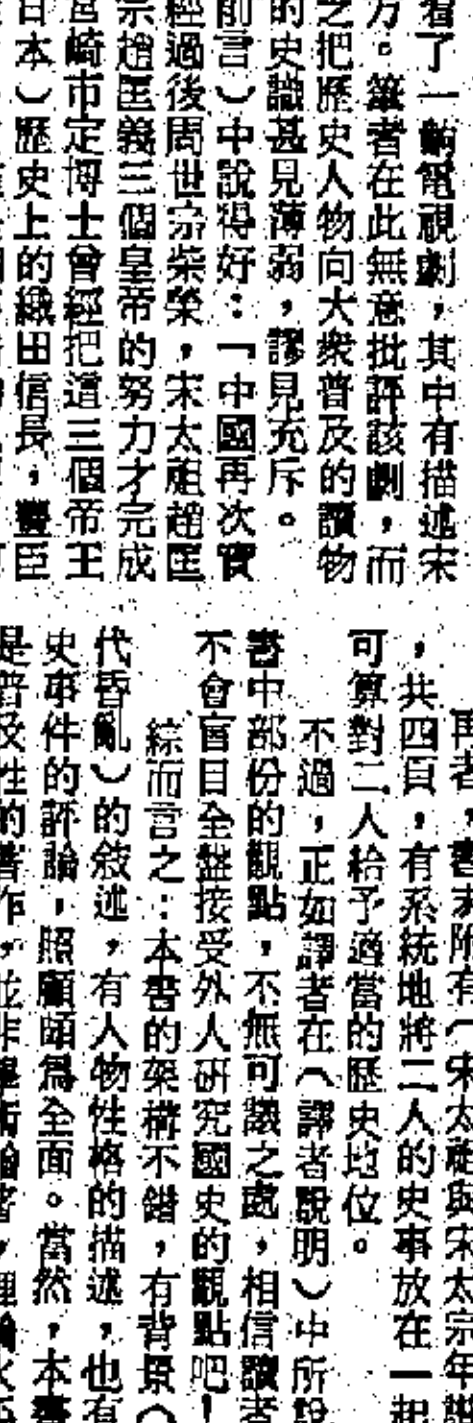 看了一齣電視劇，其中有描述宋
方。筆者在此無意批評該劇，而
之把歷史人物向大衆普及的讀物
的史識甚見薄弱，謬見充斥。
前言）中說得好：「中國再次實
經過後周世宗柴榮，宋太祖趙匡
宗趙匡義三個皇帝的努力才完成
宮崎市定博士曾經把這三個帝王
日本）歷史上的織田信長，豐臣
再者，書末附有（宋太祖與宋太宗年譜
，共四頁，有系統地將二人的史事放在一起
可算對二人給予適當的歷史地位。
不過，正如譯者在（譯者說明）中所說
書中部份的觀點，不無可議之處，相信讀者
不會盲目全盤接受外人研究國史的觀點吧！
綜而言之：本書的架構不錯，有背景（
代昏亂）的敘述，有人物性格的描述，也有
史事件的評論，照顧頗爲全面。當然，本書
是普及性的著作，並非學術論著，理論